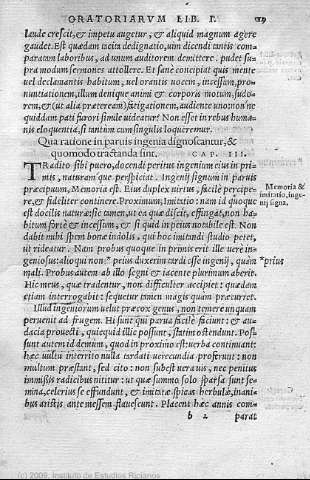 ORATORIARVM LIB. I.
laude crescit, & impetu augetur, & aliquid magnum agere
gaudet. Est quædam tacita dedignatio, uim dicendi tantis com-
paratam laboribus, ad unum auditorem demittere. pudet su-
pra modum sermones attollere. Et sanè concipiat quis mente
uel declamantis habitum, uel orantis uocem, incessum, pro-
nuntiationem, illum denique animi & corporis motum, sudo-
rem, & (ut alia præteream) fatigationem, audiente uno: non'ne
quiddam pati furori simile uideatur? Non esset in rebus huma-
nis eloquentia, si tantùm cum singulis loqueremur.
Qua ratione in paruis ingenia dignoscantur, &
quomodo tractanda sint. CAP. III.
TRadito sibi puero, docendi peritus ingenium eius in pri-
mis, naturam que perspiciat. Ingenij signum in paruis
præcipuum, Memoria est. Eius duplex uirtus, facilè percipe-
re, & fideliter continere. Proximum, Imitatio: nam id quoque
est docilis naturæ: sic tamen, ut ea quæ discit, effingat, non ha-
bitum fortè & incessum, & si quid in peius notabile est. Non
dabit mihi spem bonæ indolis, qui hoc imitandi studio petet,
ut rideatur. Nam probus quoque in primis erit ille uerè in-
geniosus: alioqui non * peius duxerim tardi esse ingenij, quàm
mali. Probus autem ab illo segni & iacente plurimùm aberit.
Hic meus, quæ tradentur, non difficulter accipiet: quædam
etiam interrogabit: sequetur tamen magis quàm præcurret.
Illud ingeniorum uelut præcox genus, non temerè unquam
peruenit ad frugem. Hi sunt qui parua facilè faciunt: & au-
dacia prouecti, quicquid illic possunt, statim ostendunt. Pos-
sunt autem id demùm, quod in proximo est: uerba continuant:
hæc uultu interrito nulla tardati uerecundia proferunt: non
multum præstant, sed citò: non subest uera uis, nec penitus
immissis radicibus nititur: ut quæ summo solo sparsa sunt se-
mina, celerius se effundunt, & imitatæ spicas herbulæ, inani-
bus aristis ante messem flauescunt. Placent hæc annis com-
b 2 parat
Memoria &
imitatio, inge-
nij signa.
*prius
(c) 2009, Instituto de Estudios Riojanos